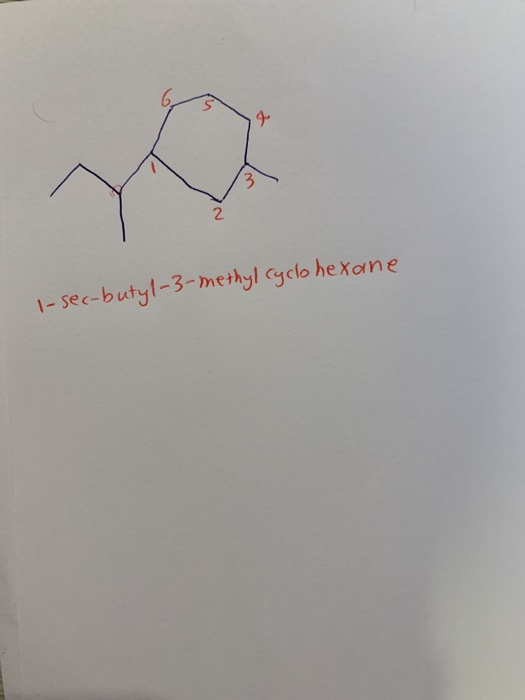 6
5
4
1
3
2
1-sec-butyl-3-methyl cyclohexane